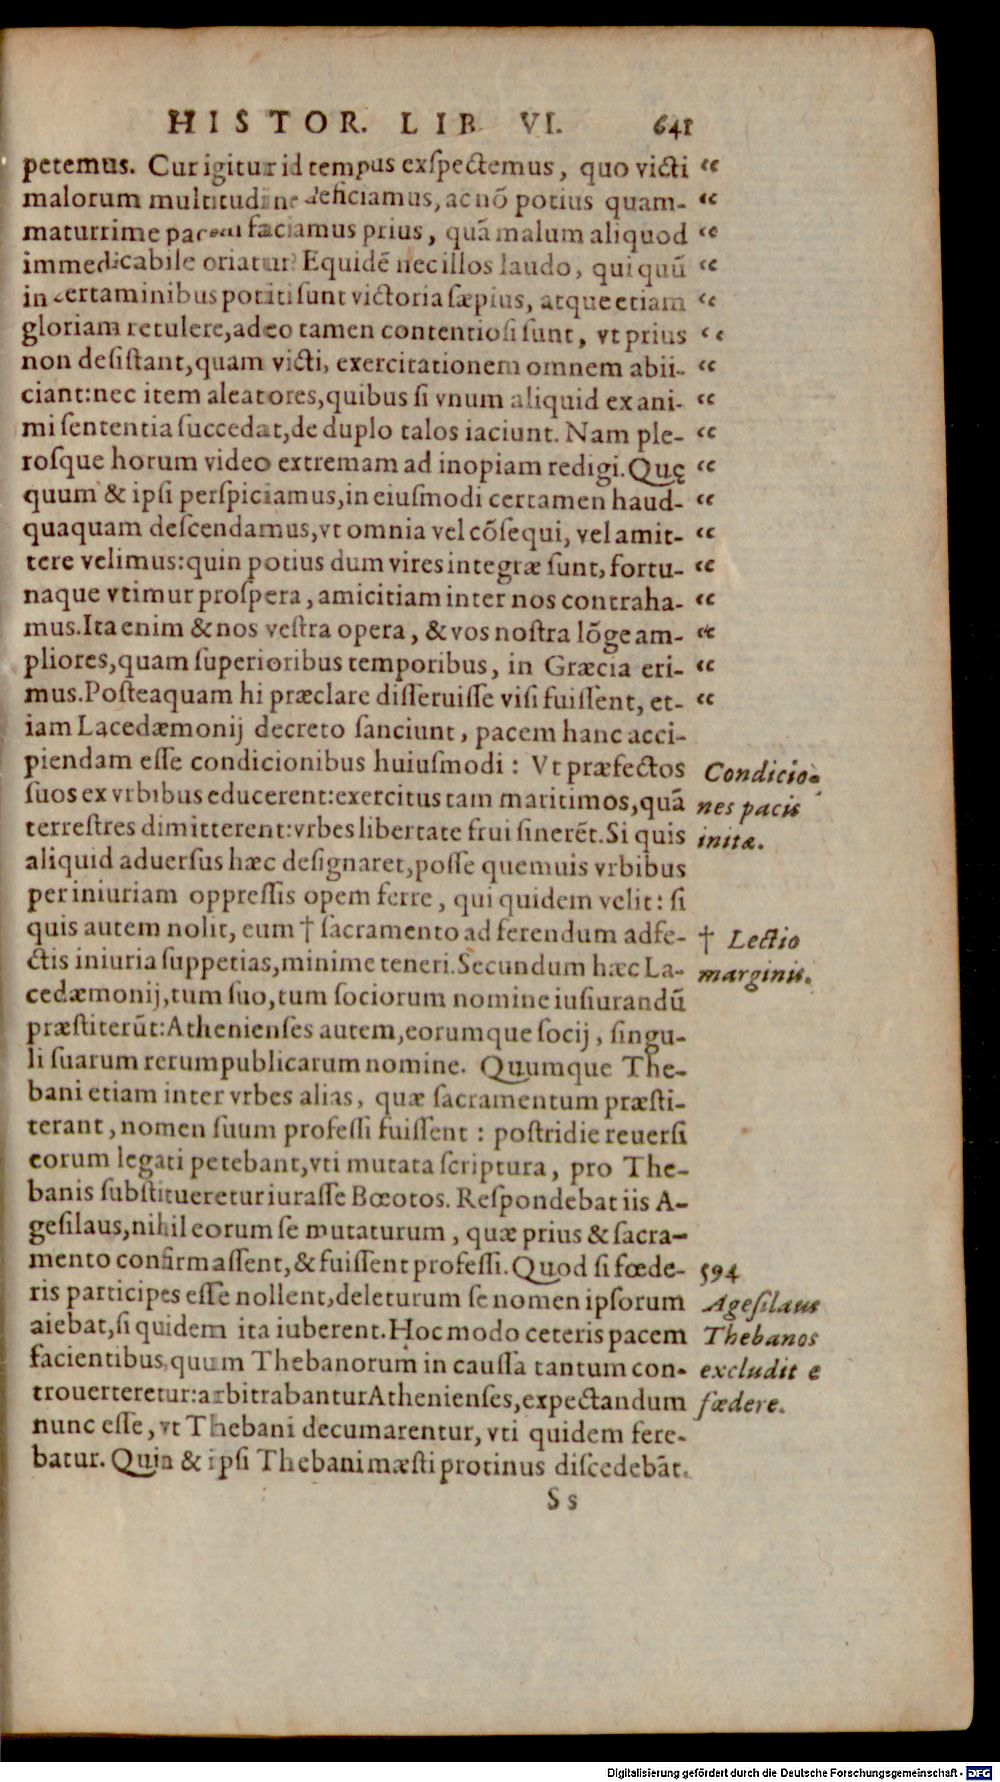 HISTOR. LIB. VI. 641
petemus. Cur igitur id tempus exſpectemus, quo victi “
malorum multitudine deficiamus, ac nō potius quam- “
maturrime pacem faciamus prius, quā malum aliquod “
immedicabile oriatur? Equidē nec illos laudo, qui quū “
in certaminibus potiti ſunt victoria ſæpius, atque etiam “
gloriam retulere, adeo tamen contentioſi ſunt, vt prius “
non deſiſtant, quam victi, exercitationem omnem abii- “
ciant: nec item aleatores, quibus ſi vnum aliquid ex ani- “
mi ſententia ſuccedat, de duplo talos iaciunt. Nam ple- “
roſque horum video extremam ad inopiam redigi. Quę “
quum & ipſi perſpiciamus, in eiuſmodi certamen haud- “
quaquam deſcendamus, vt omnia vel cōſequi, vel amit- “
tere velimus: quin potius dum vires integræ ſunt, fortu- “
naque vtimur proſpera, amicitiam inter nos contraha- “
mus. Ita enim & nos veſtra opera, & vos noſtra lōge am- “
pliores, quam ſuperioribus temporibus, in Græcia eri- “
mus. Poſteaquam hi præclare diſſeruiſſe viſi fuiſſent, et- “
iam Lacedæmonij decreto ſanciunt, pacem hanc acci-
piendam eſſe condicionibus huiuſmodi: Vt præfectos
ſuos ex vrbibus educerent: exercitus tam maritimos, quā
terreſtres dimitterent: vrbes libertate frui ſinerēt. Si quis
aliquid aduerſus hæc deſignaret, poſſe quemuis vrbibus
per iniuriam oppreſſis opem ferre, qui quidem velit: ſi
quis autem nolit, eum † ſacramento ad ferendum adfe-
ctis iniuria ſuppetias, minime teneri. Secundum hæc La-
cedæmonij, tum ſuo, tum ſociorum nomine iuſiurandū
præſtiterūt: Athenienſes autem, eorumque ſocij, ſingu-
li ſuarum rerumpublicarum nomine. Quumque The-
bani etiam inter vrbes alias, quæ ſacramentum præſti-
terant, nomen ſuum profeſſi fuiſſent: poſtridie reuerſi
eorum legati petebant, vti mutata ſcriptura, pro The-
banis ſubſtitueretur iuraſſe Bœotos. Reſpondebat iis A-
geſilaus, nihil eorum ſe mutaturum, quæ prius & ſacra-
mento confirmaſſent, & fuiſſent profeſſi. Quod ſi fœde-
ris participes eſſe nollent, deleturum ſe nomen ipſorum
aiebat, ſi quidem ita iuberent. Hoc modo ceteris pacem
facientibus, quum Thebanorum in cauſſa tantum con-
trouerteretur: arbitrabantur Athenienſes, expectandum
nunc eſſe, vt Thebani decumarentur, vti quidem fere-
batur. Quin & ipſi Thebani mæſti protinus diſcedebāt.
Ss
Condicio-
nes pacis
initæ.
† Lectio
marginis.
594
Ageſilaus
Thebanos
excludit e
fœdere.
Digitalisierung gefördert durch die Deutsche Forschungsgemeinschaft - DFG